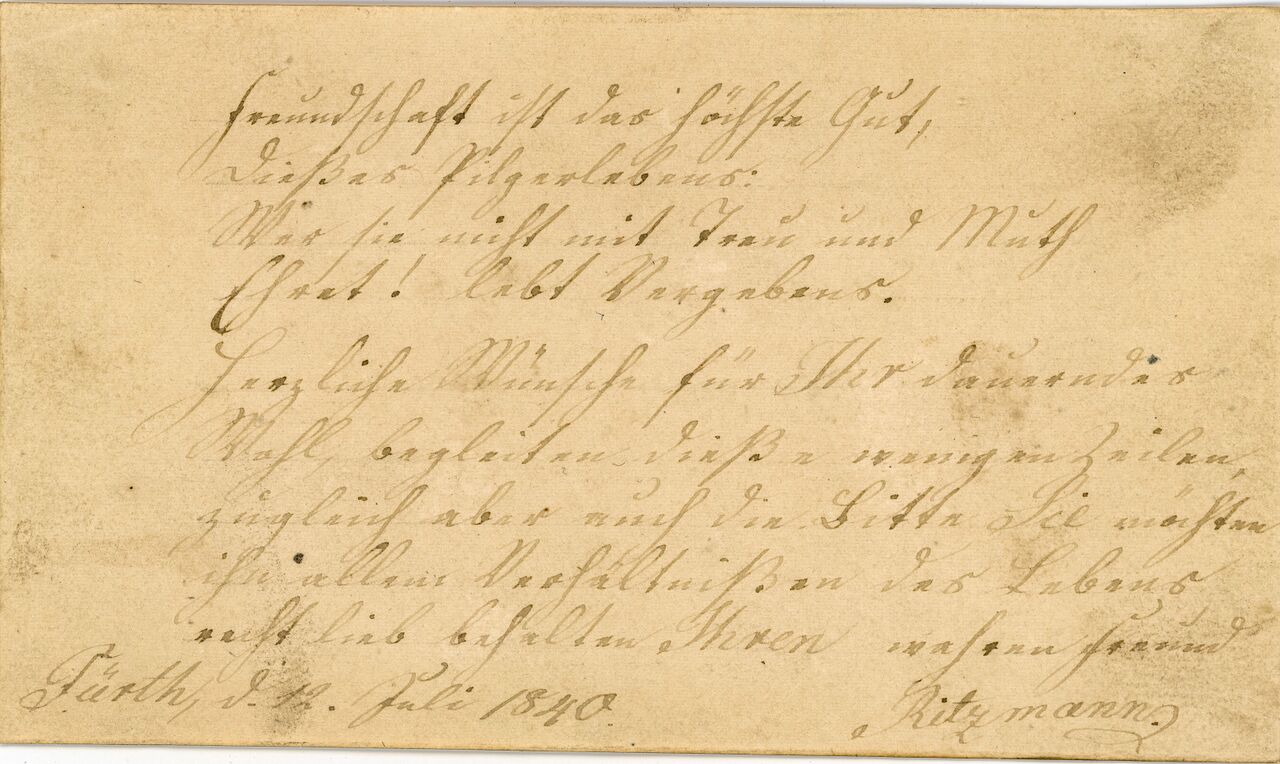 Freundschaft ist das höchste Gut,
Dießes Pilgerlebens:
Wer sie nicht mit Treu und Muth
Ehret! lebt Vergebens.
Herzliche Wünsche für Ihr dauerndes
Wohl, begleiten dieße wenigen Zeilen,
zugleich aber auch die Bitte Sie möchten
ihn allem Verhältnißen des Lebens
recht lieb behalten Ihren wahren Freund
Fürth, d. 12. Juli 1840.
Ritzmann.